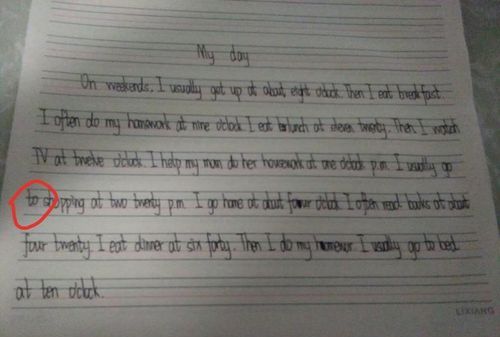 My day
On weekends, I usually get up at about eight o'clock. Then I eat breakfast.
I often do my homework at nine o'clock I eat lunch at eleven twenty. Then I watch
TV at twelve o'clock. I help my mom do her housework at one o'clock p.m. I usually go
to shopping at two twenty p.m. I go home at about four o'clock I often read books at about
four twenty. I eat dinner at six forty. Then I do my I usually go to bed
at ten o'clock.
LIXIANG